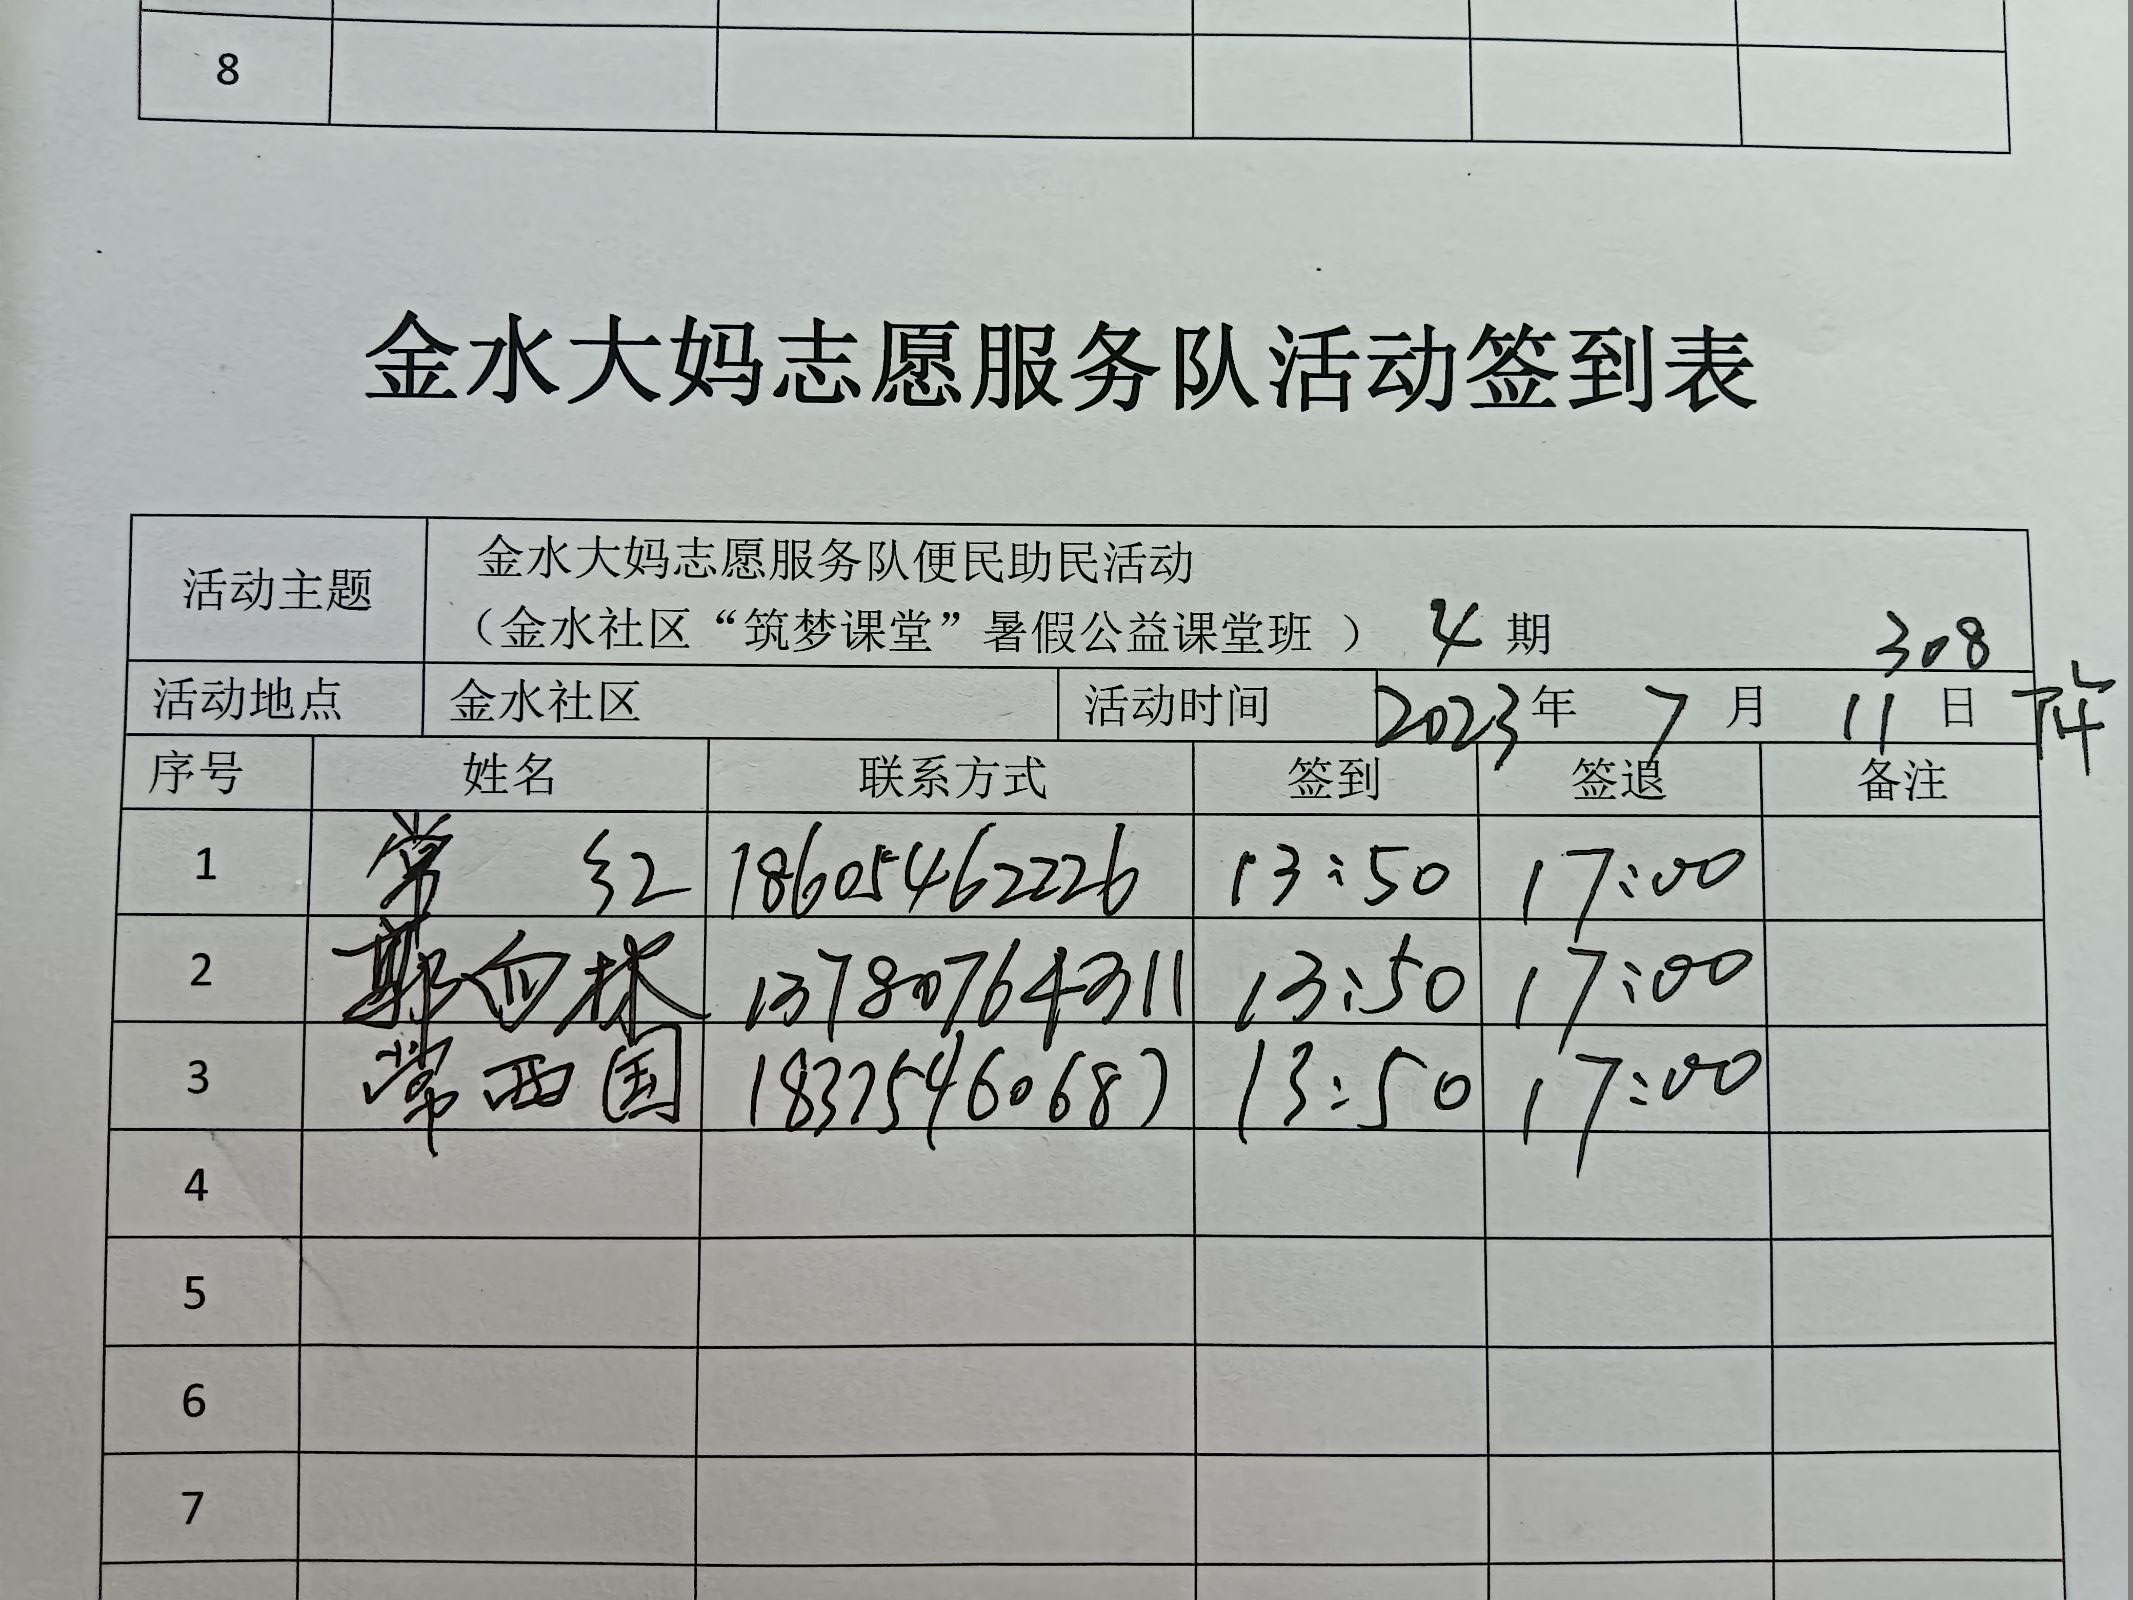 8
金水大妈志愿服务队活动签到表
活动主题 金水大妈志愿服务队便民助民活动
（金水社区“筑梦课堂”暑假公益课堂班 ） 4 期 308
活动地点 金水社区 活动时间 2023年 7月 11日 下午
序号 姓名 联系方式 签到 签退 备注
1 常 红 18605462226 13:50 17:00
2 郭向林 13780764311 13:50 17:00
3 常西国 18375460687 13:50 17:00
4
5
6
7